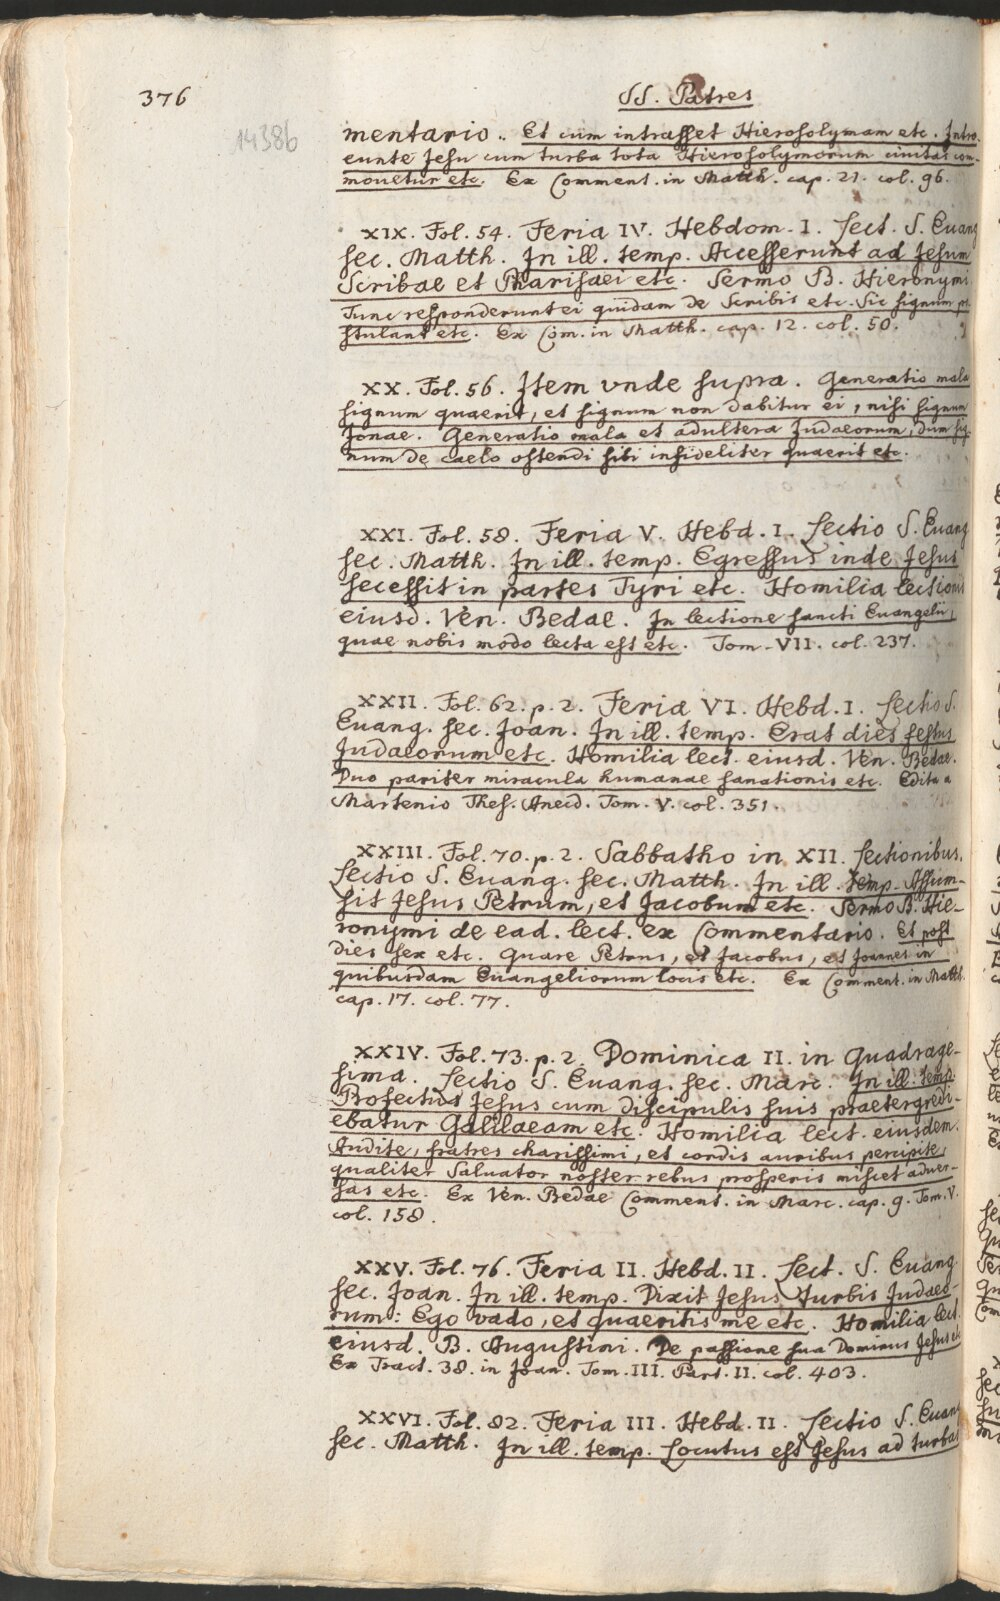 376
SS. Patres
14386
mentario.. Et cum intrasset Hierosolymam etc. Intro-
eunte Jesu cum turba tota Hierosolymorum ciuitas com-
mouetur etc. Ex Comment. in Matth. cap. 21. col. 96.
XIX. Fol. 54. Feria IV. Hebdom. I. Lect. S. Euang
sec. Matth. In ill. temp. Accesserunt ad Jesum
Scribae et Pharisaei etc. Sermo B. Hieronymi
Tunc responderunt ei quidam de Scribis etc. Sic signum po-
stulant etc. Ex Com. in Matth. cap. 12. col. 50.
XX. Fol. 56. Item vnde supra. Generatio mala
signum quaerit, et signum non dabitur ei, nisi signum
Jonae. Generatio mala et adultera Judaeorum, dum sig-
num de caelo ostendi sibi infideliter quaerit etc.
XXI. Fol. 58. Feria V. Hebd. I. Lectio S. Euang
sec. Matth. In ill. temp. Egressus inde Jesus
secessit in partes Tyri etc. Homilia lectionis
eiusd. Ven. Bedae. In lectione sancti Euangelii,
quae nobis modo lecta est etc. Tom. VII. col. 237.
XXII. Fol. 62. p. 2. Feria VI. Hebd. I. Lectio S.
Euang. sec. Joan. In ill. temp. Erat dies festus
Judaeorum etc. Homilia lect. eiusd. Ven. Bedae.
Duo pariter miracula humanae sanationis etc. Edita a
Martenio Thes. Anecd. Tom. V. col. 351.
XXIII. Fol. 70. p. 2. Sabbatho in XII. Lectionibus.
Lectio S. Euang. sec. Matth. In ill. temp. Assum-
sit Jesus Petrum, et Jacobum etc. Sermo B. Hie-
ronymi de ead. lect. ex Commentario. Et post
dies sex etc. Quare Petrus, et Jacobus, et Joannes in
quibusdam Euangeliorum locis etc. Ex Comment. in Matth.
cap. 17. col. 77.
XXIV. Fol. 73. p. 2. Dominica II. in Quadrage-
sima. Lectio S. Euang. sec. Marc. In ill. temp.
Profectus Jesus cum discipulis suis praetergredi-
ebatur Galilaeam etc. Homilia lect. eiusdem.
Audite, fratres charissimi, et cordis auribus percipite,
qualiter Saluator noster rebus prosperis miscet aduer-
sas etc. Ex Ven. Bedae Comment. in Marc. cap. 9. Tom. V.
col. 158.
XXV. Fol. 76. Feria II. Hebd. II. Lect. S. Euang.
sec. Joan. In ill. temp. Dixit Jesus turbis Judaeo-
rum: Ego vado, et quaeritis me etc. Homilia lect.
eiusd. B. Augustini. De passione sua Dominus Jesus etc
Ex Tract. 38. in Joan. Tom. III. Part. II. col. 403.
XXVI. Fol. 82. Feria III. Hebd. II. Lectio S. Euang
sec. Matth. In ill. temp. Locutus est Jesus ad turbas